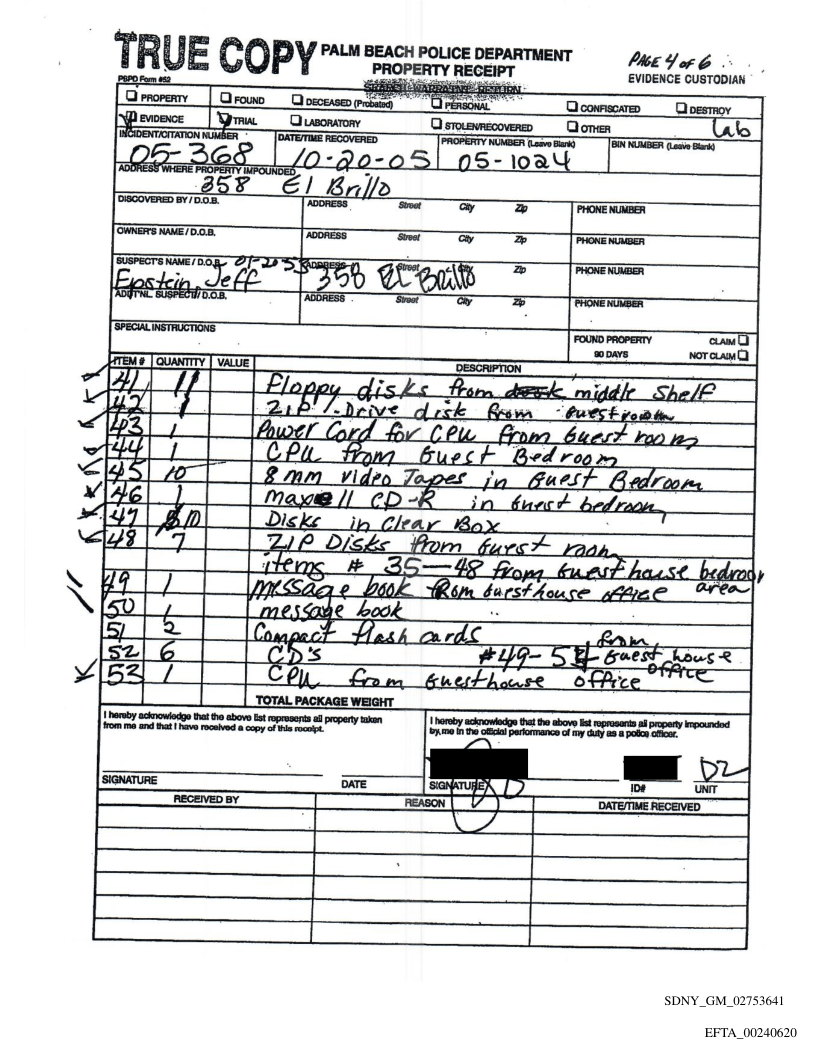 TRUE COPY PALM BEACH POLICE DEPARTMENT
PROPERTY RECEIPT
PAGE 4 of 6
EVIDENCE CUSTODIAN
PBPD Form #52
SEARCH WARRANT RETURN
PROPERTY FOUND DECEASED (Probated) PERSONAL CONFISCATED DESTROY
EVIDENCE TRIAL LABORATORY STOLEN/RECOVERED OTHER Lab
INCIDENT/CITATION NUMBER DATE/TIME RECOVERED PROPERTY NUMBER (Leave Blank) BIN NUMBER (Leave Blank)
05-368 10-20-05 05-1024
ADDRESS WHERE PROPERTY IMPOUNDED
358 El Brillo
DISCOVERED BY / D.O.B. ADDRESS Street City Zip PHONE NUMBER
OWNER'S NAME / D.O.B. ADDRESS Street City Zip PHONE NUMBER
SUSPECT'S NAME / D.O.B. 01-2053 ADDRESS Street City Zip PHONE NUMBER
Epstein, Jeff 358 El Brillo
ADDT'NL. SUSPECT/ D.O.B. ADDRESS Street City Zip PHONE NUMBER
SPECIAL INSTRUCTIONS
FOUND PROPERTY CLAIM
90 DAYS NOT CLAIM
ITEM # QUANTITY VALUE DESCRIPTION
41 11 Floppy disks from middle Shelf
42 1 ZIP Drive disk from Guest room
43 1 Power Cord for CPU from Guest room
44 1 CPU from Guest Bedroom
45 10 8 mm video Tapes in Guest Bedroom
46 1 maxell CD-R in Guest bedroom
47 10 Disks in Clear Box
48 7 ZIP Disks from Guest room
items # 35-48 from Guest house bedroom area
49 1 message book from Guesthouse office
50 1 message book
51 2 Compact flash cards
52 6 CD's #49-5 from Guest house office
53 1 CPU from Guesthouse office
TOTAL PACKAGE WEIGHT
I hereby acknowledge that the above list represents all property taken
from me and that I have received a copy of this receipt.
I hereby acknowledge that the above list represents all property impounded
by me in the official performance of my duty as a police officer.
D2
SIGNATURE DATE SIGNATURE ID# UNIT
RECEIVED BY REASON DATE/TIME RECEIVED
SDNY_GM_02753641
EFTA_00240620